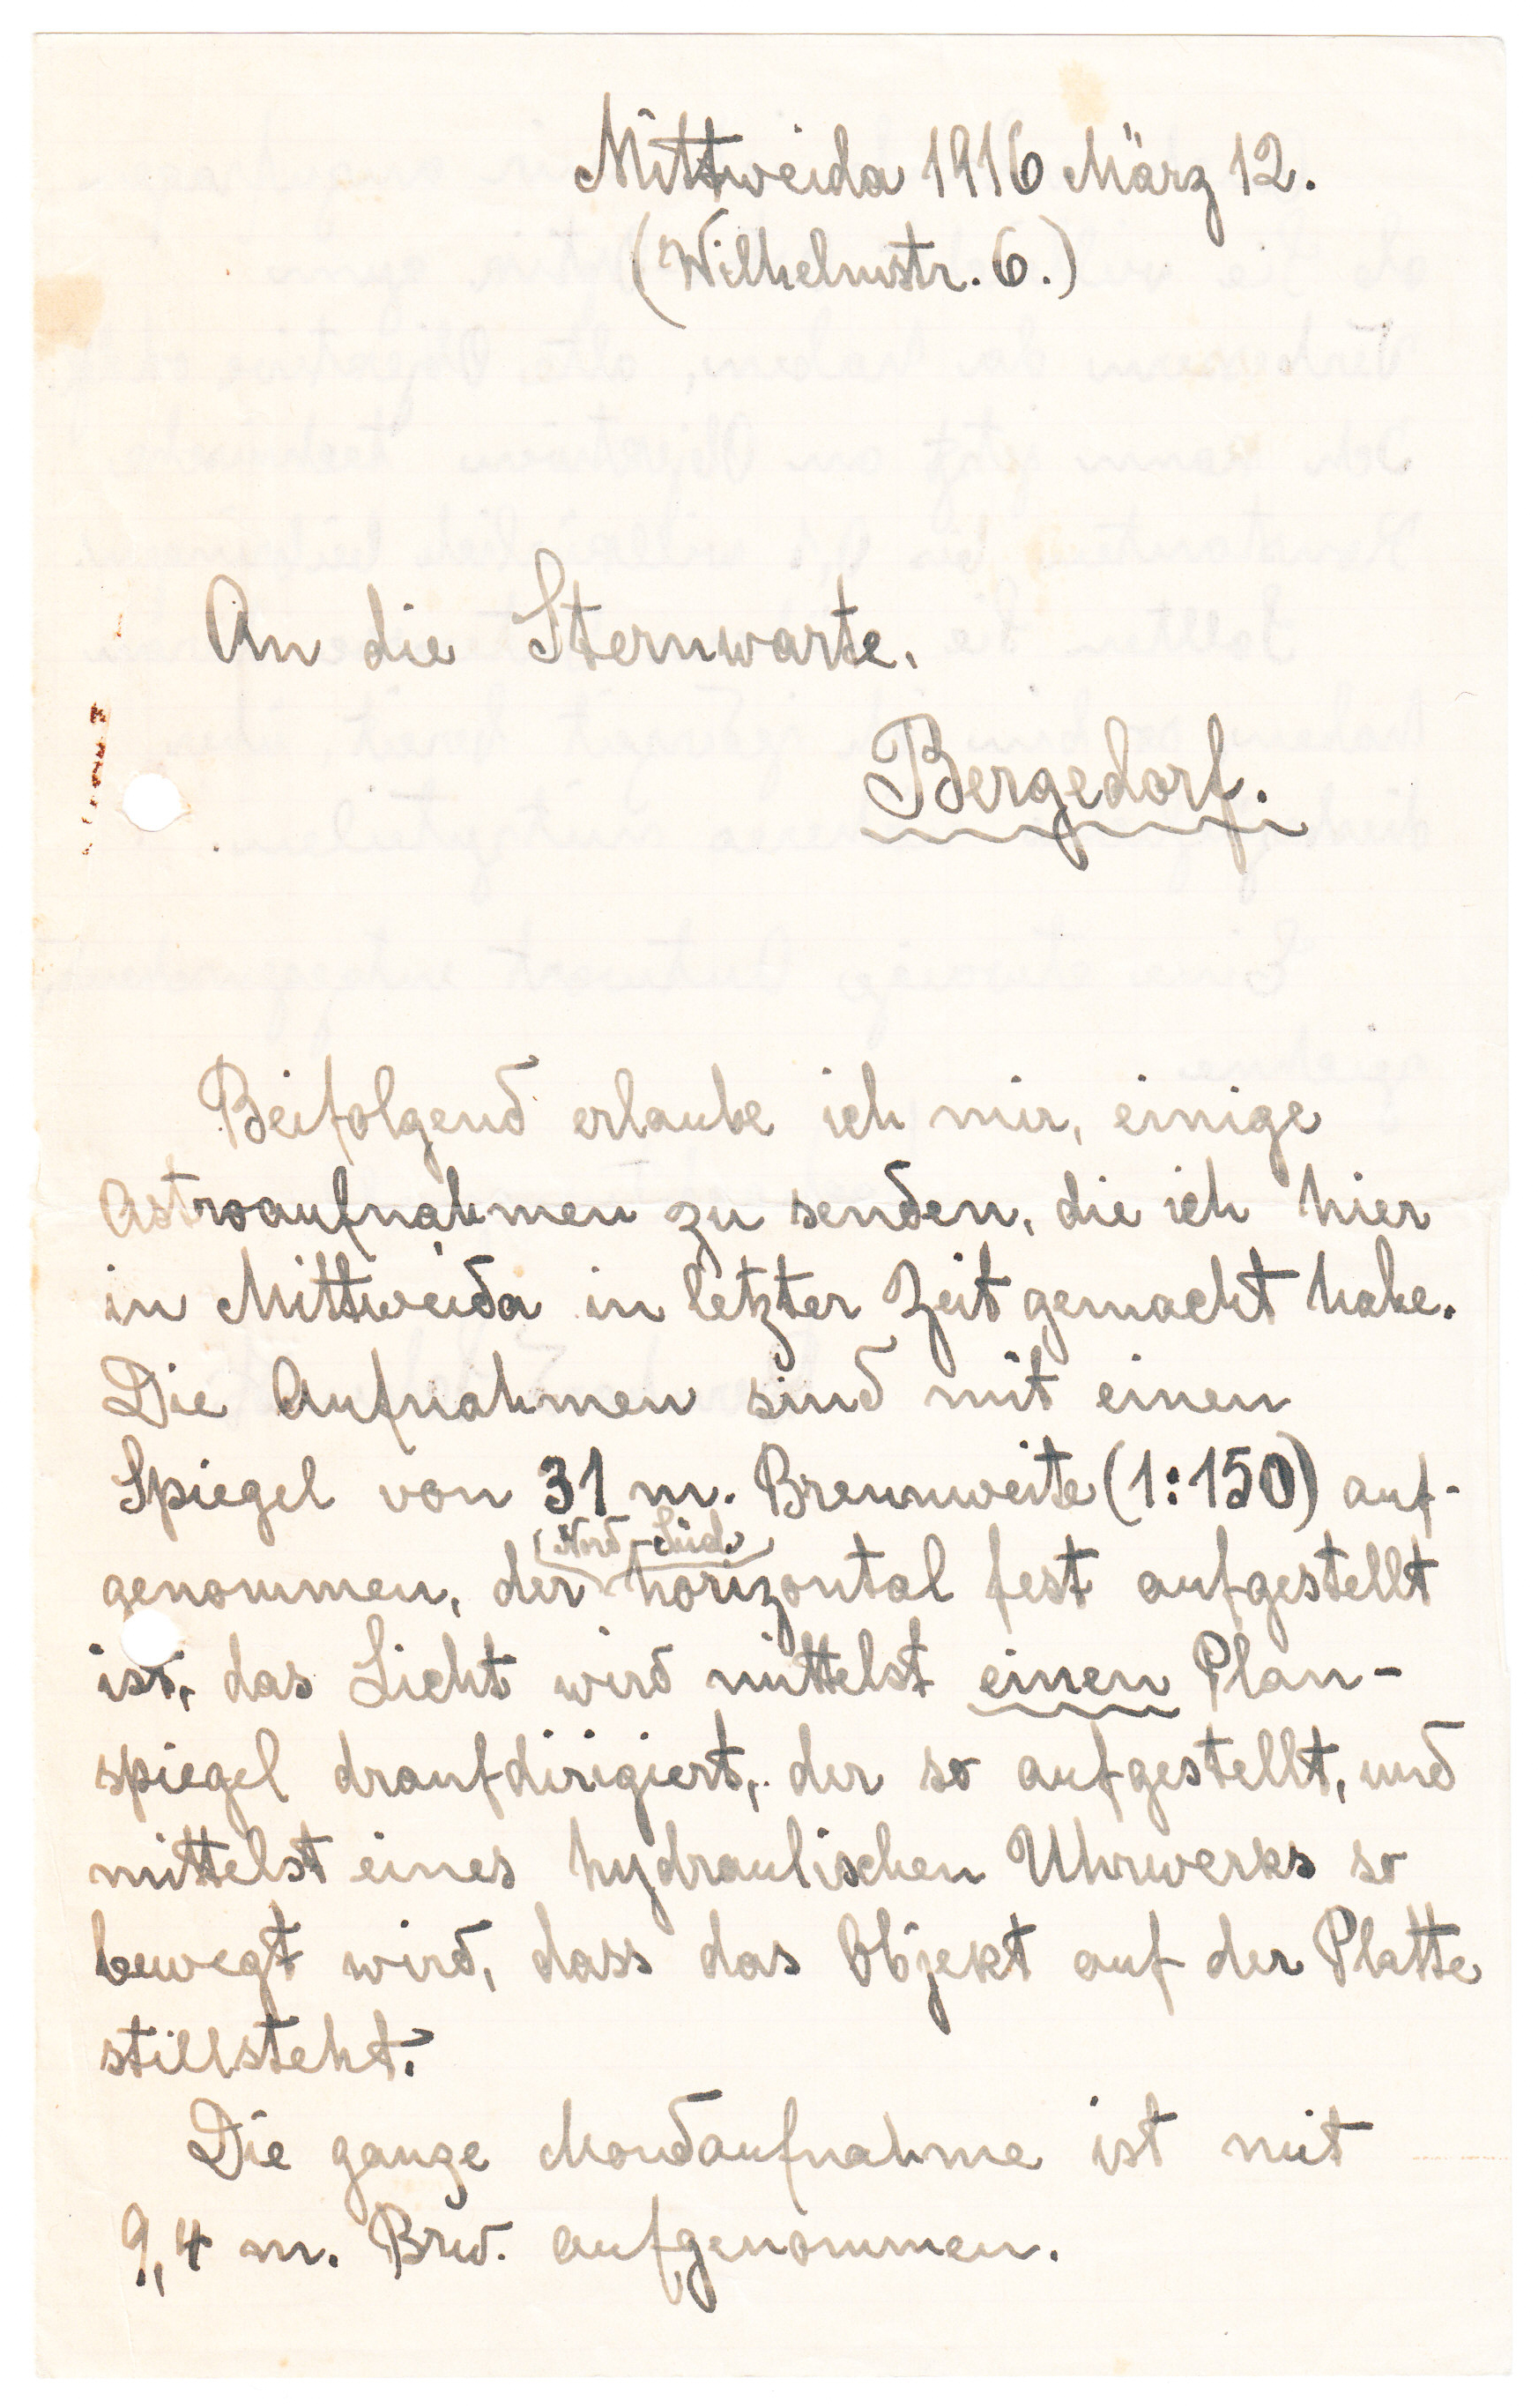 Mittweida 1916 März 12.
(Wilhelmstr. 6.)
An die Sternwarte,
Bergedorf.
Beifolgend erlaube ich mir, einige
Astroaufnahmen zu senden, die ich hier
in Mittweida in letzter Zeit gemacht habe.
Die Aufnahmen sind mit einen
Spiegel von 31 m. Brennweite (1:150) auf-
(Nord-Süd)
genommen, der horizontal fest aufgestellt
ist, das Licht wird mittelst einen Plan-
spiegel draufdirigiert, der so aufgestellt, und
mittelst eines hydraulischen Uhrwerks so
bewegt wird, dass das Objekt auf der Platte
stillsteht.
Die ganze Mondaufnahme ist mit
9,4 m. Brw. aufgenommen.